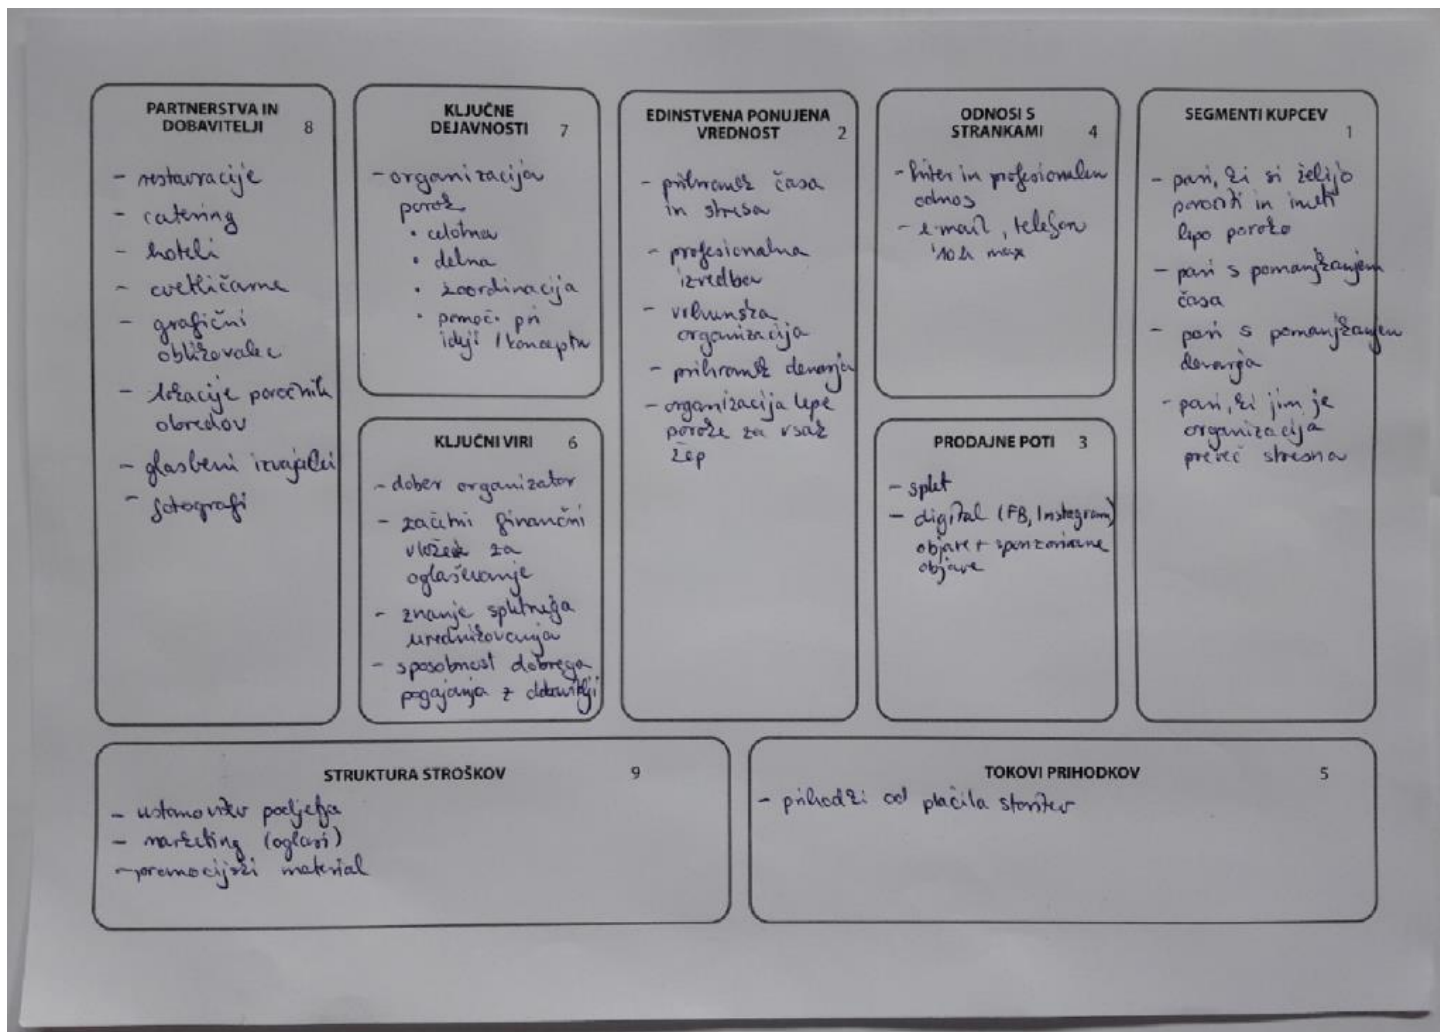 PARTNERSTVA IN
DOBAVITELJI 8
- restavracije
- catering
- hoteli
- cvetličarne
- grafični
oblikovalec
- lokacije poročnih
obredov
- glasbeni izvajalci
- fotografi
KLJUČNE
DEJAVNOSTI 7
- organizacija
porok
• celotna
• delna
• koordinacija
• pomoč pri
ideji / konceptu
KLJUČNI VIRI 6
- dober organizator
- začetni finančni
vložek za
oglaševanje
- znanje spletnega
uredništkovanja
- sposobnost dobrega
pogajanja z dobavitelji
EDINSTVENA PONUJENA
VREDNOST 2
- prihranek časa
in stresa
- profesionalna
izvedba
- vrhunska
organizacija
- prihranek denarja
- organizacija lepe
poroke za vsak
žep
ODNOSI S
STRANKAMI 4
- hiter in profesionalen
odnos
- e-mail, telefon
max
PRODAJNE POTI 3
- splet
- digital (FB, Instagram)
objave + sponzorirane
objave
SEGMENTI KUPCEV
1
- pari, ki si želijo
poročiti in imeti
lepo poroko
- pari s pomanjkanjem
časa
- pari s pomanjkanjem
denarja
- pari, ki jim je
organizacija
preveč stresna
STRUKTURA STROŠKOV 9
- ustanovitev podjetja
- marketing (oglasi)
- promocijski material
TOKOVI PRIHODKOV 5
- prihodki od plačila storitev